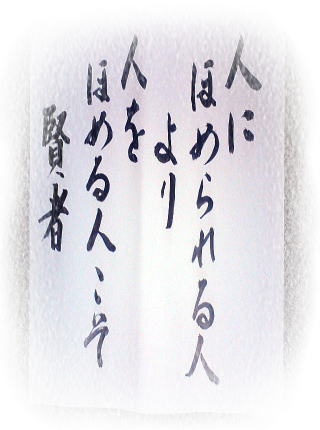 人に
ほめられる人
より
人を
ほめる人こそ
賢者